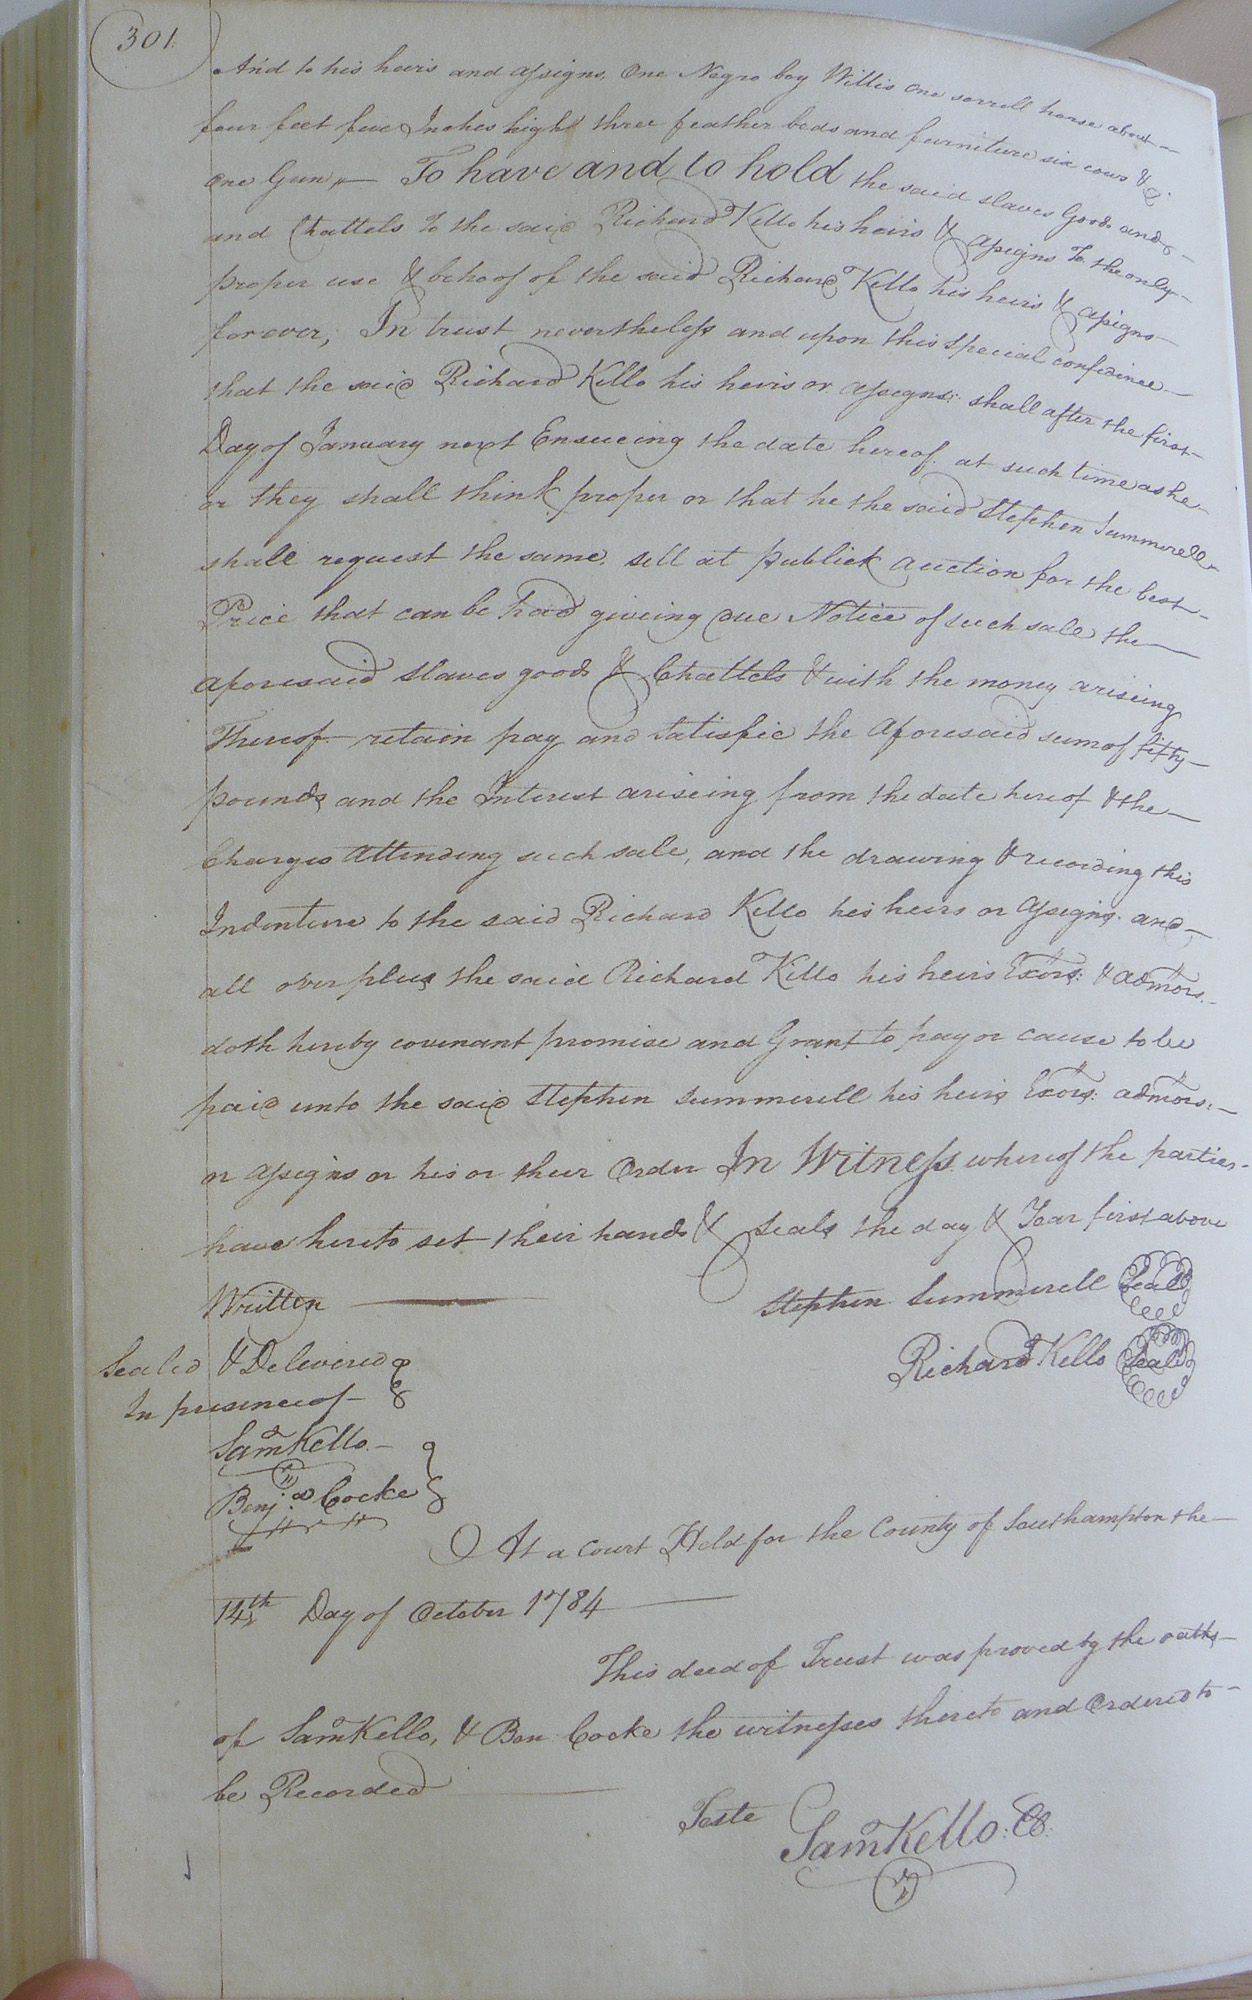 301
And to his heirs and assigns, One Negro boy Willis one sorrell horse about
four feet five Inches high three feather beds and furniture six cows &
One Gun, To have and to hold the said slaves Goods and
and Chattels To the said Richard Kello his heirs & assigns To the only
proper use & behoof of the said Richard Kello his heirs & assigns
forever, In trust nevertheless and upon this special confidince
that the said Richard Kello his heirs or assigns: shall after the first
Day of January next Ensueing the date hereof at such time as he
or they shall think proper or that he the said Stephen Summerell
shall request the same, sell at publick auction for the best
Price that can be had giveing due Notice of such sale the
aforesaid slaves goods & Chattels & with the money ariseing
Thereof retain pay and satisfie the aforesaid sum of fifty
pounds and the Interest ariseing from the date hereof & the
Charges attending such sale, and the drawing & recording this
Indenture to the said Richard Kello his heirs or assigns and
all overplus the said Richard Kello his heirs Exors: & admors.
doth hereby covenant promise and Grant to pay or cause to be
paid unto the said Stephen Summerell his heirs Exors: admors:
or assigns or his or their Order In Witness whereof the parties
have hereto set their hands & Seals the day & Year first above
Written
Stephen Summerell Seal
Sealed & Delivered
Richard Kello Seal
In presence of
Samº Kello
Benj: Cocke
At a court Held for the County of Southampton the
14th Day of October 1784
This deed of Trust was proved by the oaths
of Samº Kello, & Ben Cocke the witnesses thereto and Ordered to
be Recorded
Teste
Samº Kello: CC: